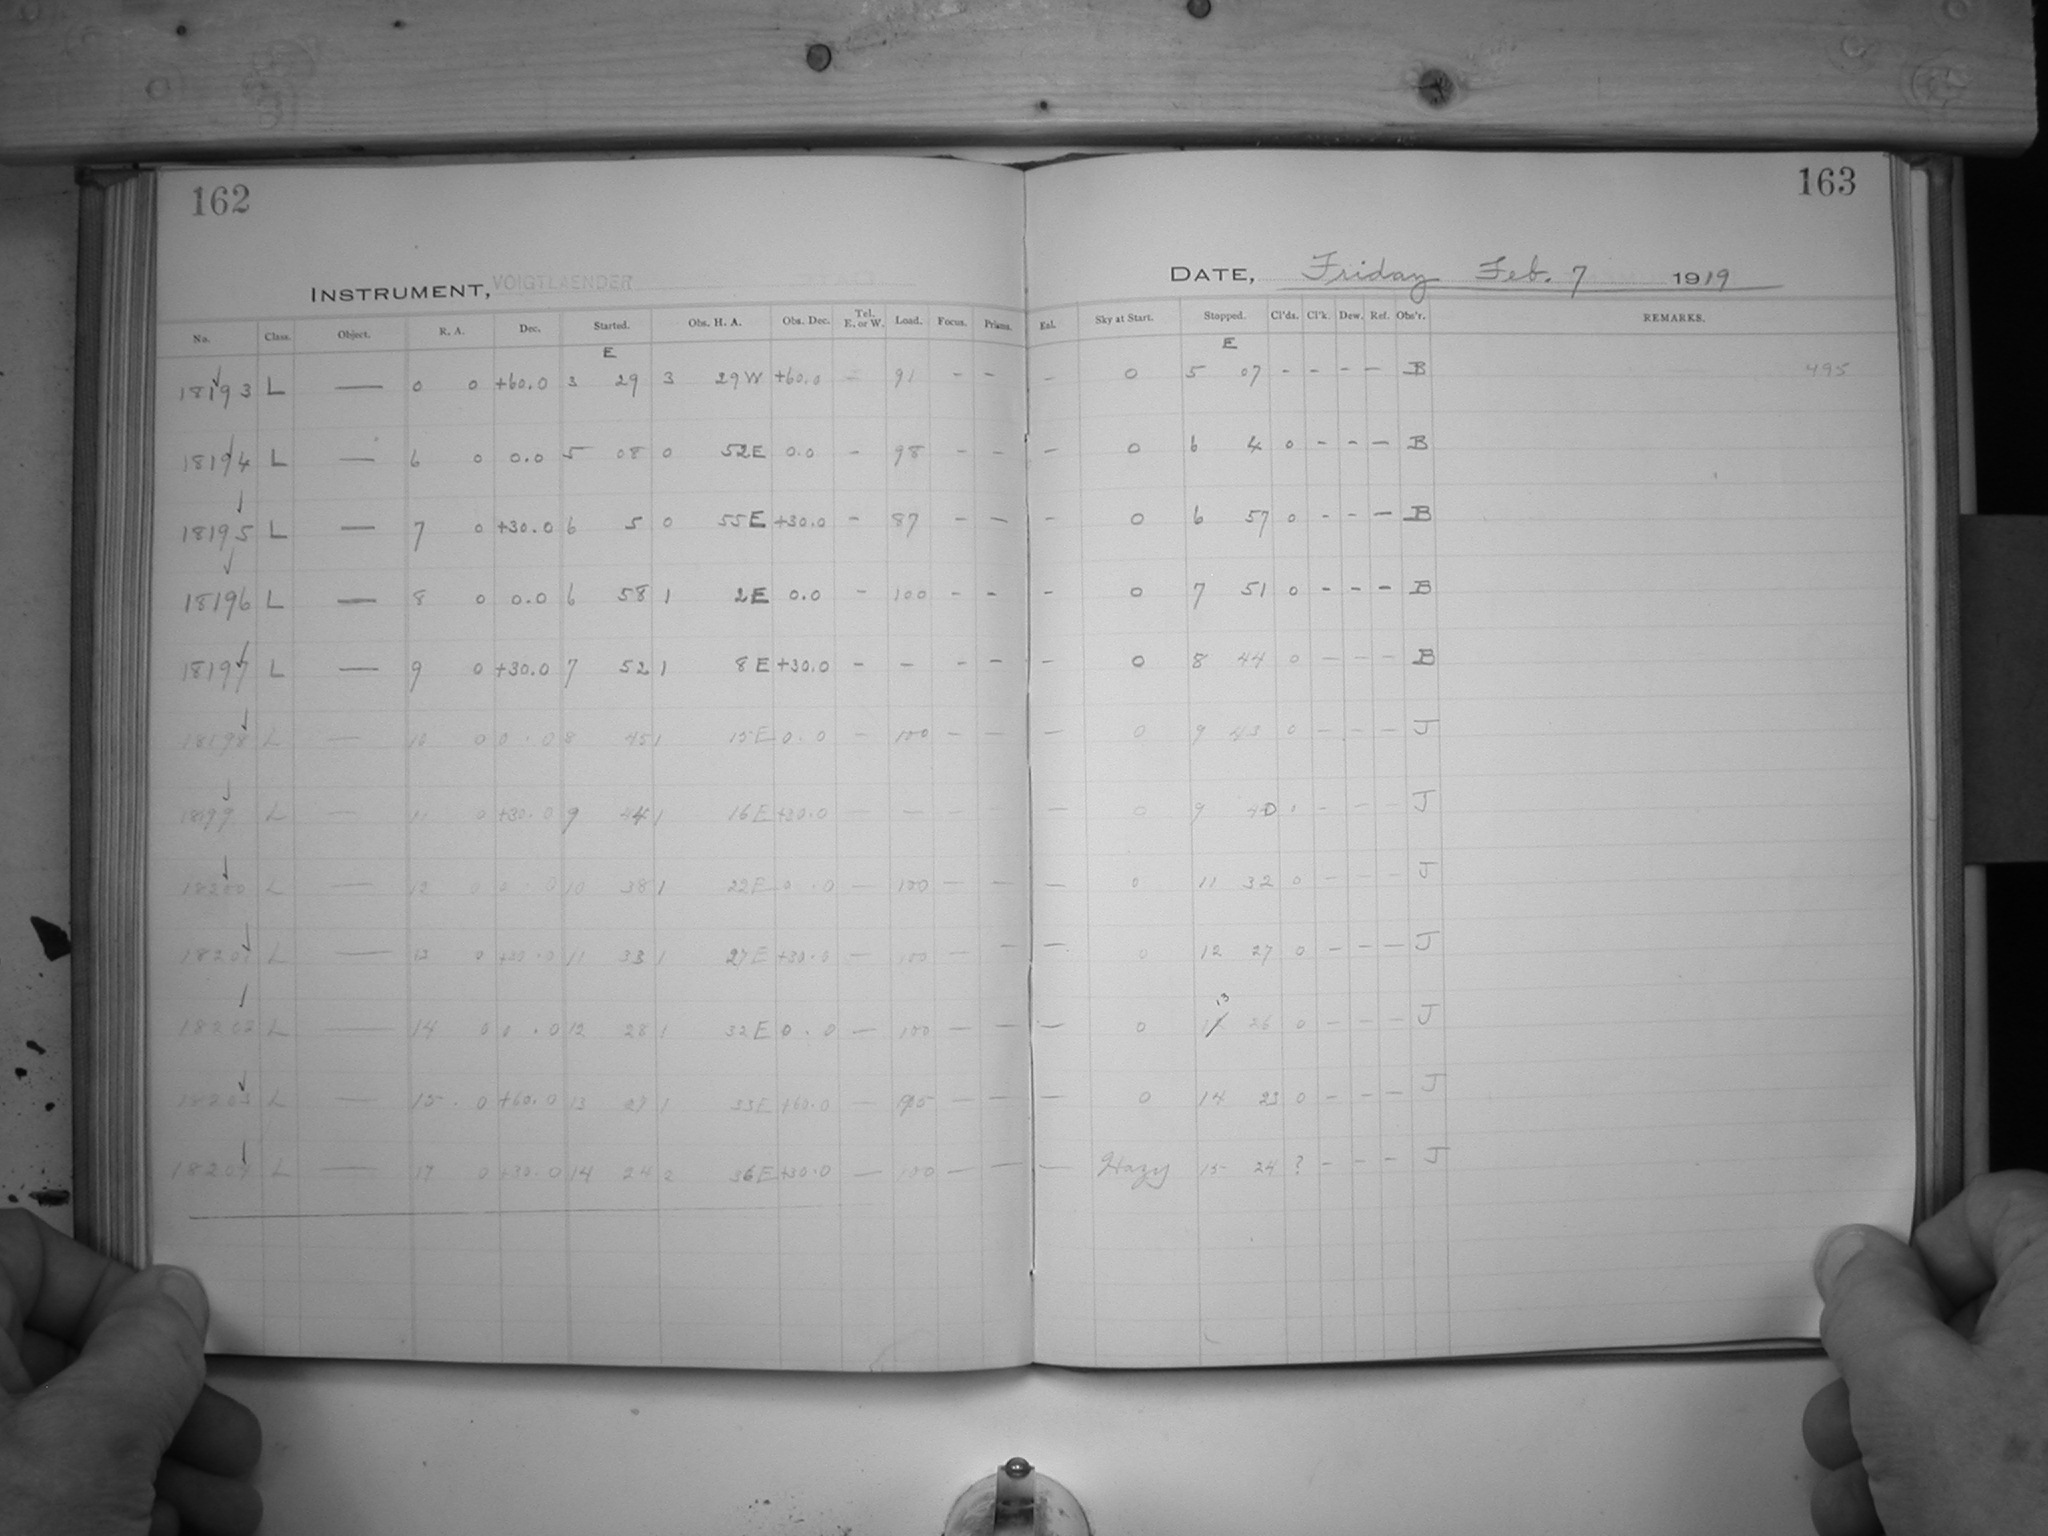 162
163
INSTRUMENT, VOIGTLAENDER
DATE, Friday Feb. 7 1919
No. Class. Object. R. A. Dec. Started. Obs. H. A. Obs. Dec. Tel. E. or W. Load. Focus. Prisms. Eal. Sky at Start. Stopped. Cl'ds. Cl'k. Dew. Ref. Obs'r. REMARKS.
E E
18193 L — 0 0 +60.0 3 29 3 29 W +60.0 - 91 - - - 0 5 07 - - - - B 495
18194 L — 6 0 0.0 5 08 0 52 E 0.0 - 98 - - - 0 6 4 0 - - - B
18195 L — 7 0 +30.0 6 5 0 55 E +30.0 - 87 - - - 0 6 57 0 - - - B
18196 L — 8 0 0.0 6 58 1 2 E 0.0 - 100 - - - 0 7 51 0 - - - B
18197 L — 9 0 +30.0 7 52 1 8 E +30.0 - - - - - 0 8 44 0 - - - B
18198 L — 10 0 0.0 8 45 1 15 E 0.0 - 100 - - - 0 9 43 0 - - - J
18199 L — 11 0 +30.0 9 44 1 16 E +30.0 - - - - - 0 9 - - - J
18200 L — 12 0 0.0 10 38 1 22 E 0.0 - 100 - - - 0 11 32 0 - - - J
18201 L — 0 +30.0 11 33 1 27 E +30.0 - 100 - - - 0 12 27 0 - - - J
18202 L — 14 0 0.0 12 28 1 32 E 0.0 - 100 - - - 0 13 26 0 - - - J
18203 L — 15 0 +60.0 13 27 1 33 E +60.0 - 95 - - - 0 14 23 0 - - - J
18204 L — 17 0 +30.0 14 24 2 36 E +30.0 - 100 - - - Hazy 15 24 ? - - - J